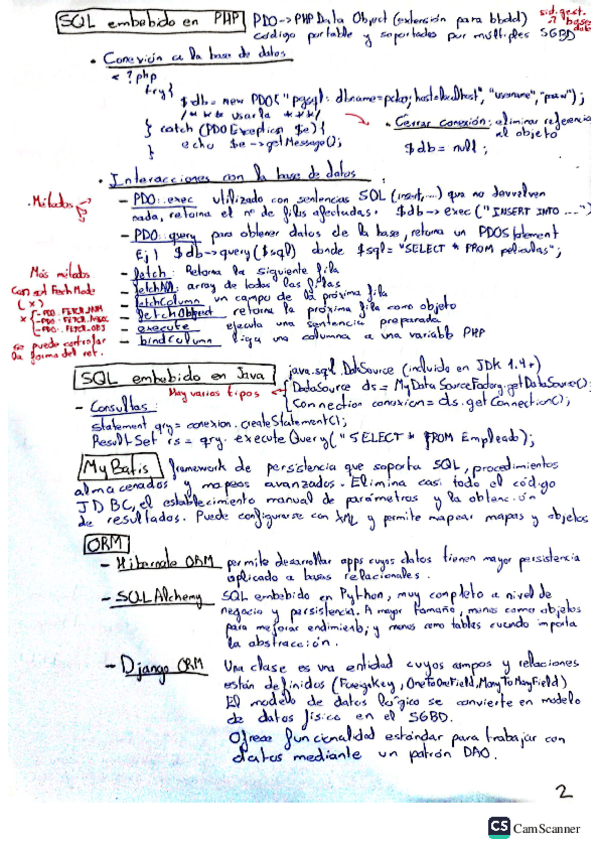 SQL embebido en PHP PDO -> PHP Data Object (extensión para bbdd)
código portable y soportado por múltiples SGBD
sist. gest. bases datos
• Conexión a la base de datos
<?php
try{
$db = new PDO("pgsql: dbname=pcdog; host=localhost", "username", "psw");
/*** usarla ***/
} catch (PDOException $e){
echo $e->getMessage();
}
• Cerrar conexión: eliminar referencia
al objeto
$db = null;
• Interacciones con la base de datos
• Métodos
- PDO::exec utilizado con sentencias SQL (insert,...) que no devuelven
nada, retorna el nº de filas afectadas. $db->exec("INSERT INTO ....")
- PDO::query para obtener datos de la base, retorna un PDOStatement
Ej) $db->query($sql) donde $sql="SELECT * FROM peliculas";
Más métodos
- fetch: Retorna la siguiente fila
- fetchAll: array de todas las filas
- fetchColumn un campo de la próxima fila
- fetchObject retorna la próxima fila como objeto
- execute ejecuta una sentencia preparada
- bindcolumn liga una columna a una variable PHP
Con set FetchMode
(x)
x {-PDO::FETCH_NUM
-PDO::FETCH_ASSOC
-PDO::FETCH_OBJ
se puede controlar
la forma del ret.
SQL embebido en Java java.sql.DataSource (incluido en JDK 1.4+)
Hay varios tipos
{ DataSource ds = MyDataSourceFactory.getDataSource();
Connection conexion = ds.getConnection();
- Consultas:
statement qry = conexion.createStatement();
ResultSet is = qry.executeQuery("SELECT * FROM Empleado);
MyBatis framework de persistencia que soporta SQL, procedimientos
almacenados y mapeos avanzados. Elimina casi todo el código
JDBC, el establecimiento manual de parámetros y la obtención
de resultados. Puede configurarse con XML y permite mapear mapas y objetos
ORM
- Hibernate ORM permite desarrollar apps cuyos datos tienen mayor persistencia
aplicado a bases relacionales.
- SQLAlchemy SQL embebido en Python, muy completo a nivel de
negocio y persistencia. A mayor tamaño, menos como objetos
para mejorar endimiento; y menos como tables cuando importa
la abstracción.
- Django ORM Una clase es una entidad cuyos campos y relaciones
están definidos (ForeignKey, OneToOneField, ManyToManyField)
El modelo de datos lógico se convierte en modelo
de datos físico en el SGBD.
Ofrece funcionalidad estándar para trabajar con
datos mediante un patrón DAO.
2
CS CamScanner